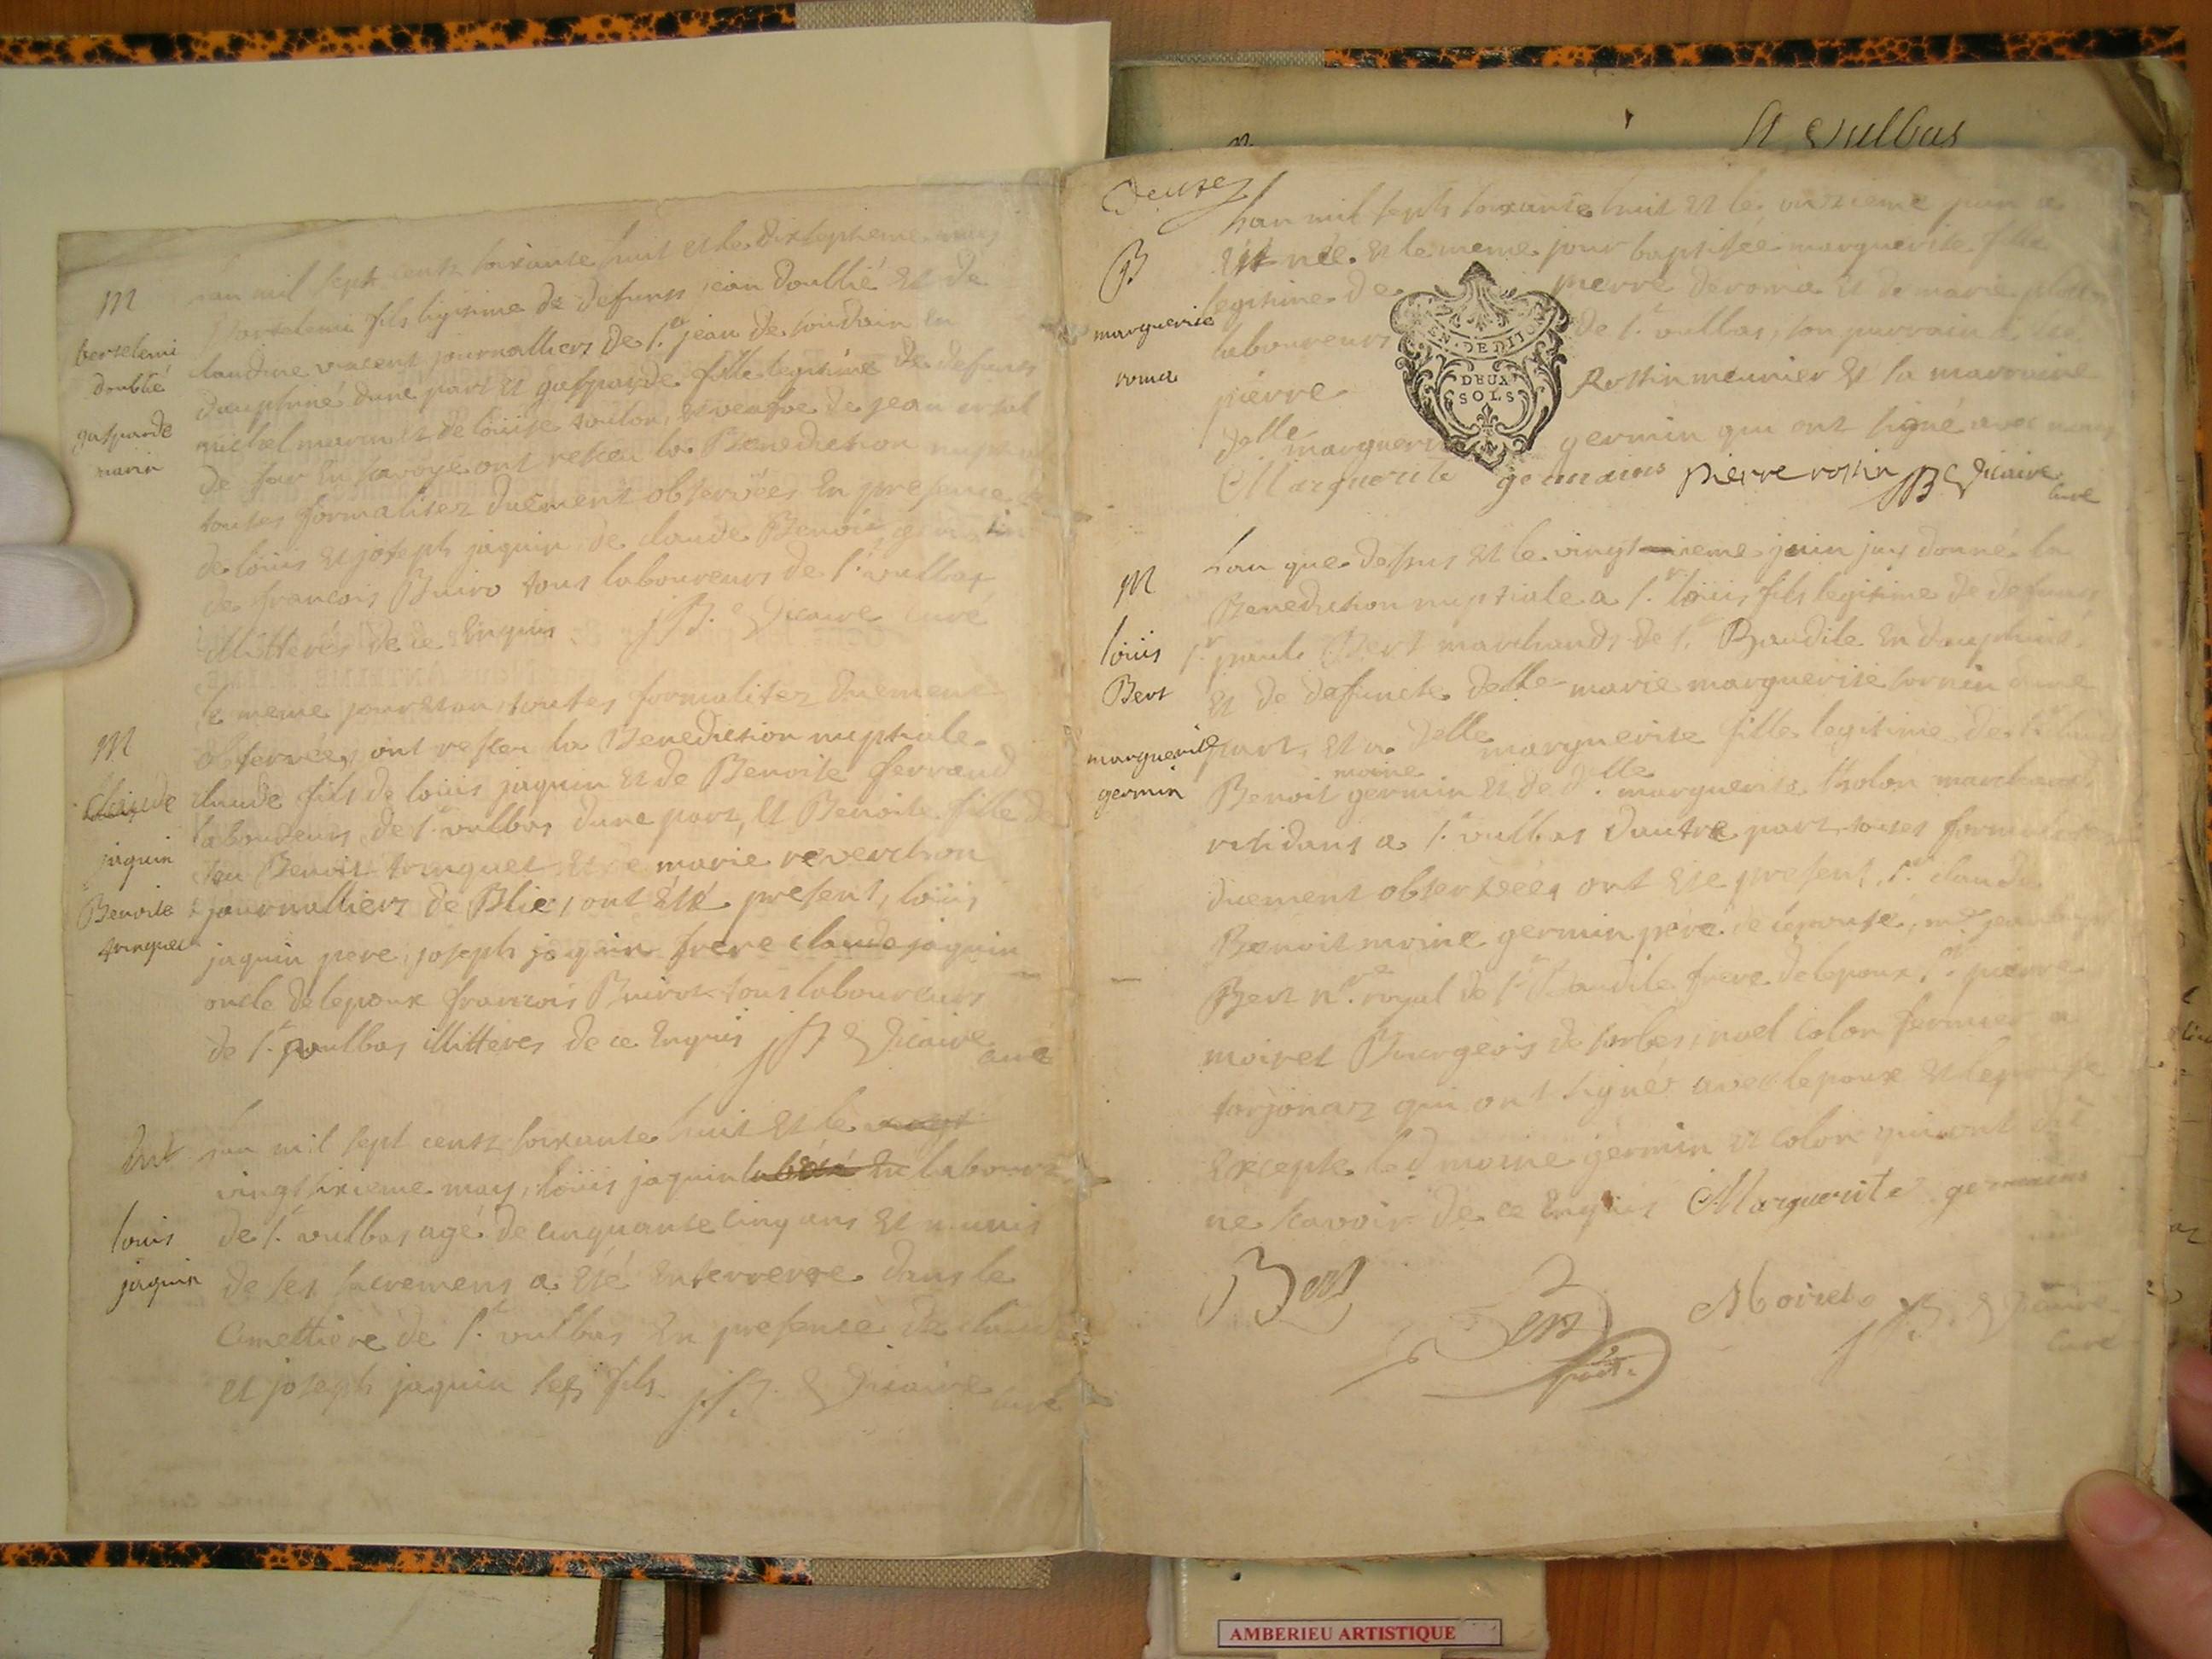 St Vulbas
M
bertelemi
doublié
gasparde
marin
lan mil sept cents soixante huit et le dixseptieme may
Bartelemi fils ligitime de defunts jean doublié et de
claudine vincent journalliers de St jean de soudain en
dauphiné dune part et gasparde fille legitime de defunts
michel marin et de loüise toulon, et veufve de jean
de en savoye ont reseu la Benediction nuptiale
toutes formalitez duement observées En presence de
de loüis et joseph jaquin, de claude Benoit
de francois Buiro tous laboureurs de St vulbas
illitterés de ce Enquis JB Dicaire curé
M
claude
jaquin
Benoite
trinquet
le meme jour et an toutes formalitez duement
observées ont reseu la Benediction nuptiale
claude fils de loüis jaquin et de Benoite ferrand
laboureurs de St vulbas dune part, Et Benoite fille de
feu Benoit trinquet et de marie reverchon
journalliers de Blie, ont Eté present, loüis
jaquin pere, joseph jaquin frere claude jaquin
oncle de lepoux francois Buiroz tous laboureurs
de St vulbas illitteres de ce Enquis JB Dicaire
curé
Ent
louis
jaquin
lan mil sept cents soixante huit et le vingt
vingt sixieme may, loüis jaquin laboureur
de St vulbas agé de cinquante cinq ans et munis
de ses sacremens a Eté Enterrere dans le
Cimettiere de St vulbas En presence de claude
et joseph jaquin ses fils JB Dicaire
curé
Deuxe
B
marguerite
roma
lan mil septs soixante huit et le onzieme juin a
Eté née et le meme jour baptisée marguerite fille
legitime de pierre deroma et de marie
laboureurs de St vulbas, son parrain a Eté
pierre Rostin meunier et la marraine
delle marguerite germin qui ont signé avec nous
EN·DEDIT
DEUX
SOLS
Marguerite germains pierre rostin JB Dicaire
curé
M
loüis
Bert
marguerite
germin
Lan que dessus et le vingt juin jay donné la
Benediction nuptiale a Sr loüis fils legitime de defunts
Sr paul Bert marchands de St Baudile En dauphiné
et de defuncte delle marie marguerite dune
part, et a delle marguerite fille legitime de Sr claude
Benoit moine germin et de delle marguerite Kolon marchands
residans a St vulbas dautre part toutes formalitez
duement observées, ont Ete present, Sr claude
Benoit moine germin pere de lepouse, me jean
Bert Nre royal de St Baudile frere de lepoux, Sr pierre
moiret Bourgeois de sorbes, noel colon fermier a
torjonaz qui ont signé avec lepoux et lepouse
Excepte led moine germin et colon qui ont dit
ne scavoir de ce Enquis Marguerite germains
Bert Bert Moiret JB Dicaire
curé
AMBERIEU ARTISTIQUE